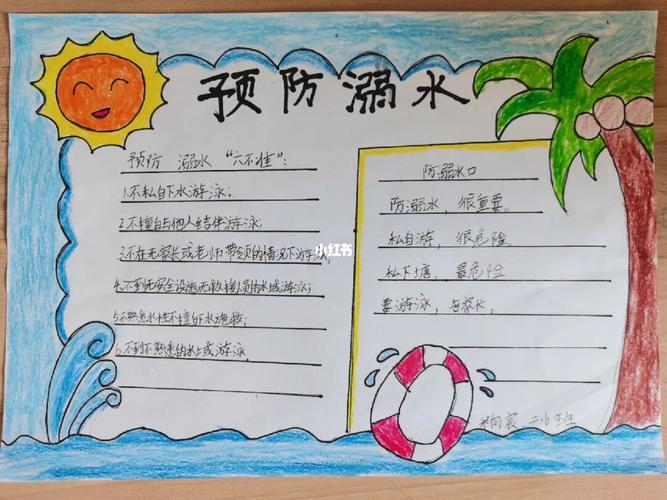 预防溺水
预防 溺水 “六不准”:
1.不私自下水游泳;
2.不擅自与他人结伴游泳;
3.不在无家长或老师带领的情况下游泳
4.不到无安全设施无救援人员的水域游泳;
5.不熟悉水性不擅自下水施救;
6.不到不熟悉的水域游泳
防溺水口
防溺水,很重要。
私自游,很危险。
私下塘,最危险
要游泳,告家长。
小红书
二小 班